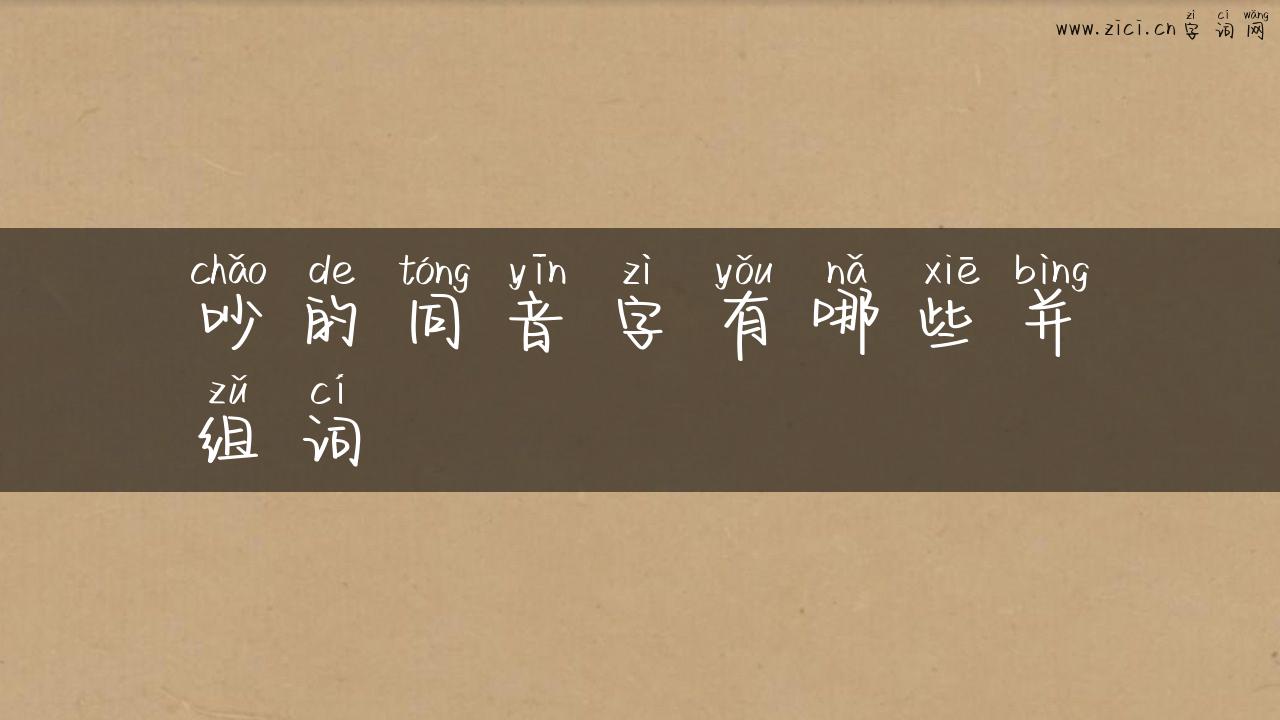 zì cí wǎng
www.zici.cn 字词网
chǎo de tóng yīn zì yǒu nǎ xiē bìng
吵的同音字有哪些并
zǔ cí
组词